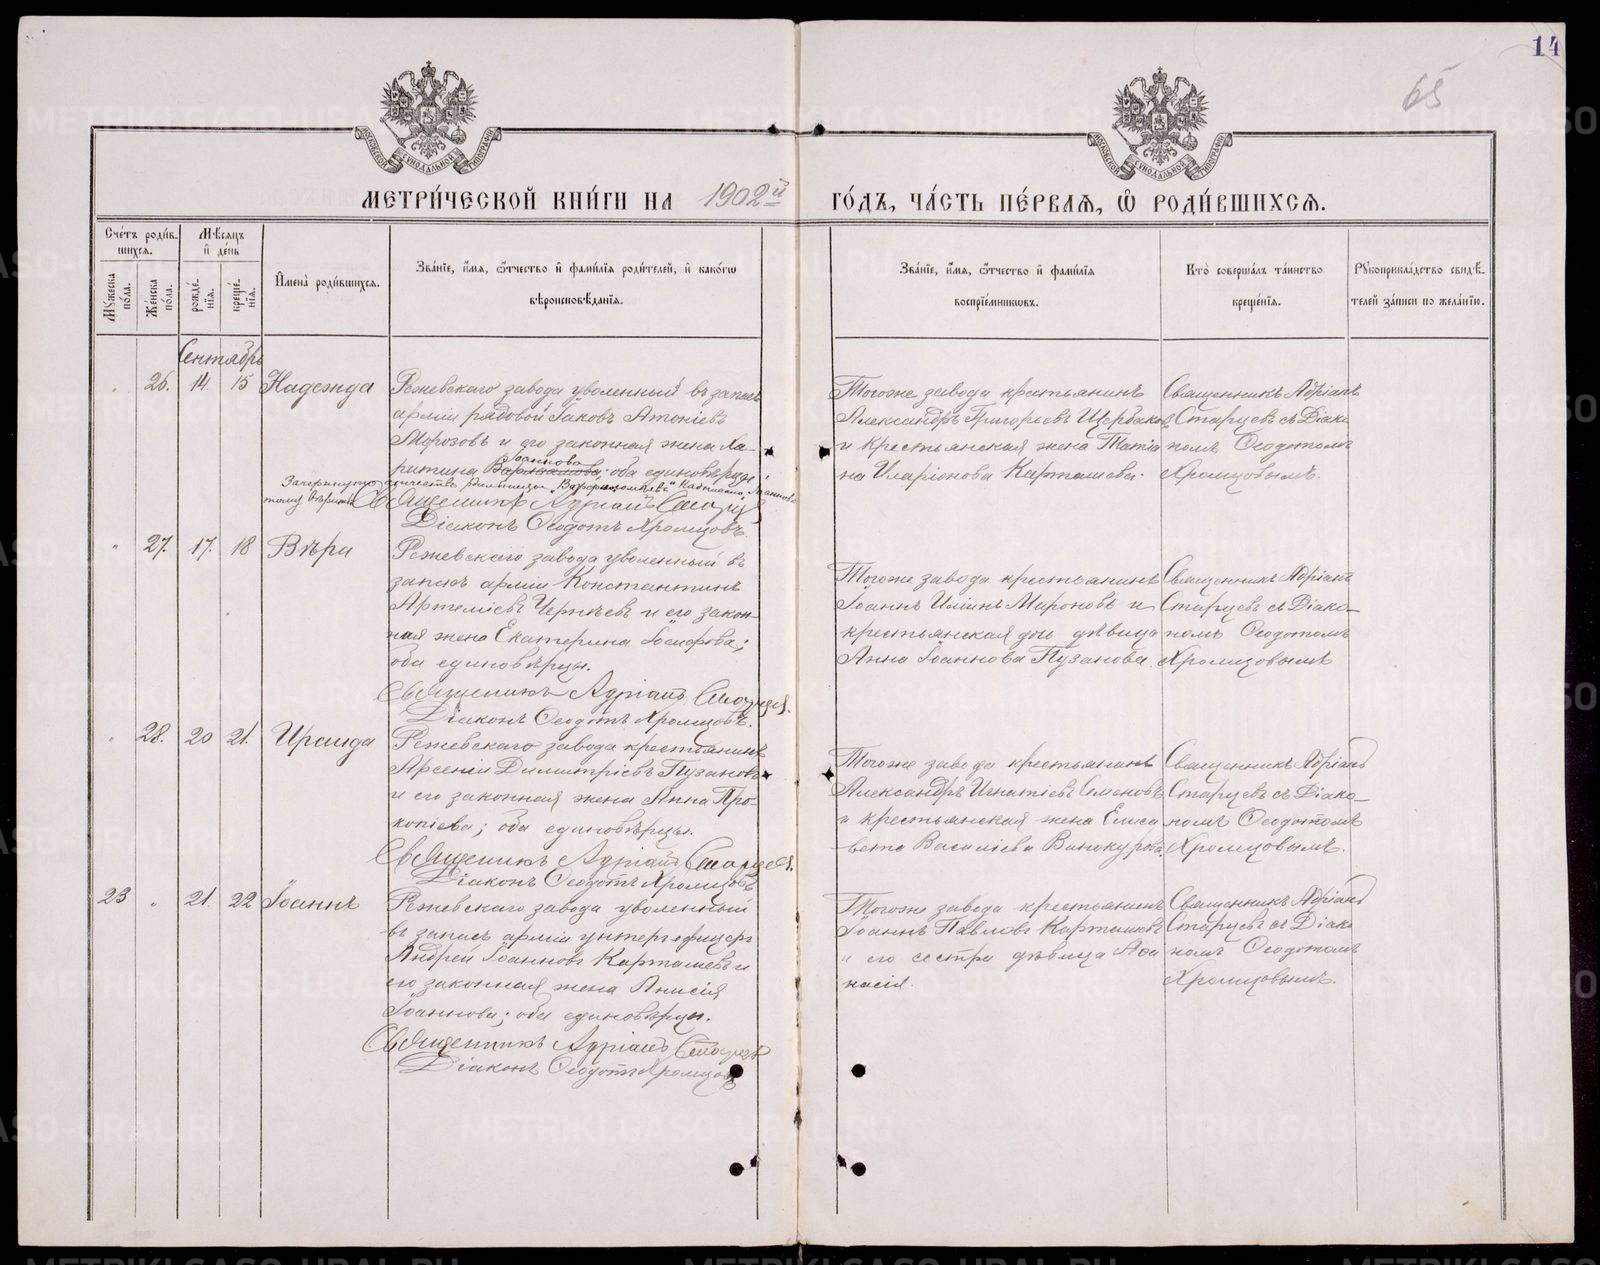 14
65
МЕТРИ́ЧЕСКОЙ КНИ́ГИ НА 1902й ГО́ДЪ, ЧА́СТЬ ПЕ́РВАЯ, Ѽ РОДИ́ВШИХСЯ.
МОСКОВСКОЙ СѴНОДАЛЬНОЙ ТИПОГРАФІИ
МОСКОВСКОЙ СѴНОДАЛЬНОЙ ТИПОГРАФІИ
Сче́тъ роди́в-
шихся.
Мужеска по́ла.
Же́нска по́ла.
Мѣ́сяцъ и де́нь
рожде́-нїя.
креще́-нїя.
Имена̀ роди́вшихся.
Зва́нїе, и́мя, ѻ҆́тчество и фами́лїя роди́телей, и како́гѡ
вѣроисповѣ́данїя.
Зва́нїе, и́мя, ѻ҆́тчество и фами́лїя
воспрїе́мниковъ.
Кто̀ соверша́лъ та́инство
креще́нїя.
Рукоприкла́дство свидѣ́-
телей за́писи по жела́нїю.
Сентябрь
" 26. 14. 15 Надежда
Режевскаго завода уволенный въ запасъ
арміи рядовой Іаковъ Антоніевъ
Морозовъ и его законная жена Ха-
Іоаннова
ритина Варлаамова оба единовѣрцы
Зачеркнуто отчество
Надписано „Іоаннова"
тому вѣрить Священникъ Адріанъ Старцев
Діаконъ Ѳеодотъ Хромцовъ.
Тогоже завода крестьянинъ
Александръ Григорьевъ Щербаковъ
и крестьянская жена Татіа
на Иларіонова Карташева.
Священникъ Адріанъ
Старцевъ съ Діако
номъ Ѳеодотомъ
Хромцовымъ.
" 27. 17. 18 Вѣра
Режевскаго завода уволенный въ
запасъ арміи Константинъ
Артеміевъ Чернѣевъ и его закон-
ная жена Екатерина Іосифова;
оба единовѣрцы.
Священникъ Адріанъ Старцевъ.
Діаконъ Ѳеодотъ Хромцовъ.
Тогоже завода крестьянинъ
Іоаннъ Иліинъ Мироновъ и
крестьянская дочь дѣвица
Анна Іоаннова Пузанова.
Священникъ Адріанъ
Старцевъ съ Діако-
номъ Ѳеодотомъ
Хромцовымъ
" 28. 20 21. Ираида
Режевскаго завода крестьянинъ
Арсеній Димитріевъ Пузановъ
и его законная жена Анна Про-
копіева; оба единовѣрцы.
Священникъ Адріанъ Старцевъ.
Діаконъ Ѳеодотъ Хромцовъ
Тогоже завода крестьянинъ
Александръ Игнатіевъ Семеновъ
и крестьянская жена Елиса
вета Василіева Винокурова.
Священникъ Адріанъ
Старцевъ съ Діако-
номъ Ѳеодотомъ
Хромцовымъ.
23 " 21. 22 Іоаннъ
Режевскаго завода уволенный
въ запасъ арміи унтеръ-офицеръ
Андрей Іоанновъ Карташевъ и
его законная жена Анисія
Іоаннова; оба единовѣрцы.
Священникъ Адріанъ Старцевъ
Діаконъ Ѳеодотъ Хромцовъ
Тогоже завода крестьянинъ
Іоаннъ Павловъ Карташевъ
и его сестра дѣвица Аѳа
насія.
Священникъ Адріанъ
Старцевъ съ Діако
номъ Ѳеодотомъ
Хромцовымъ.
METRIKI.GASO-URAL.RU